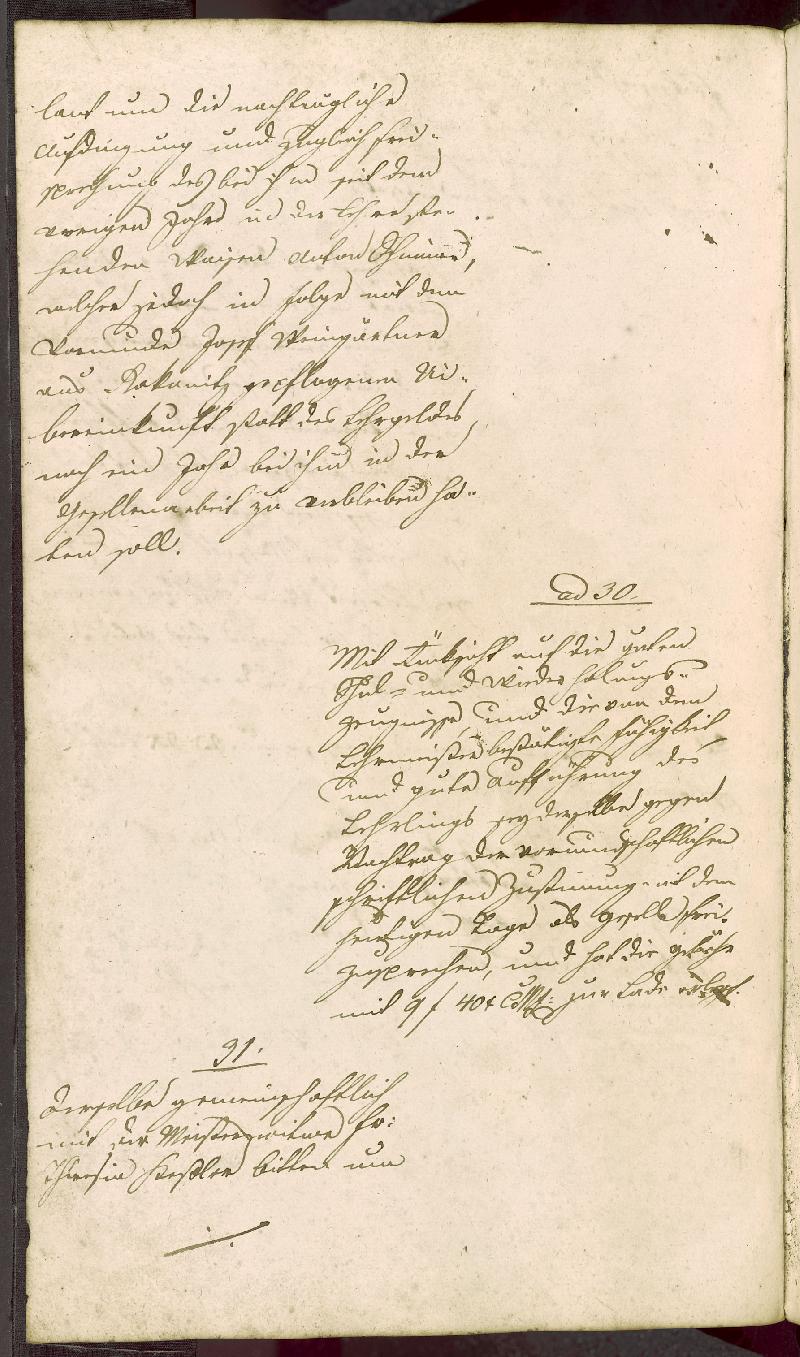 lanf um die nachträgliche
Aufdingung und zugleich frei-
sprechung des bei ihm seit dem
vorigen Jahre in der Lehre ste-
henden Waisen Anton
welcher jedoch in Folge mit dem
Vormunde Josef Weingärtner
aus Rakonitz gepflogenen Ui-
bereinkunft statt des Lehrgeldes
noch ein Jahr bei ihm in der
Gesellenarbeit zu verbleiben ha-
ben soll.
ad 30.
Mit Rücksicht auf die guten
Schul- und Wiederholungs-
zeugnisse, und die von dem
Lehrmeister bestätigte Fähigkeit
und gute Aufführung des
Lehrlings sey derselbe gegen
Nachtrag der vormundschaftlichen
schriftlichen Zustimmung mit dem
heutigen Tage als Geselle frei-
zusprechen, und hat die Gebühr
mit 9 f 40 x CMz: zur Lade erlegt.
31.
Derselbe gemeinschaftlich
mit der Meisterswitwe Fr:
Theresia Kessler bitten um